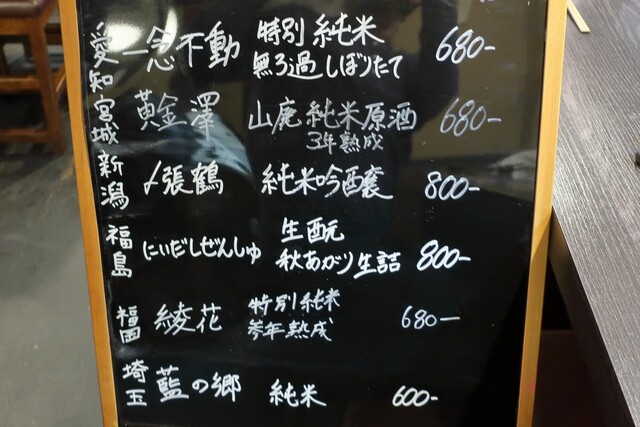 愛知 一念不動 特別 純米 680-
無ろ過しぼりたて
宮城 黄金澤 山廃 純米原酒 680-
3年熟成
新潟 〆張鶴 純米吟醸 800-
福島 にいだしぜんしゅ 生酛 800-
秋あがり生詰
福岡 綾花 特別純米 680-
参年熟成
埼玉 藍の郷 純米 600-